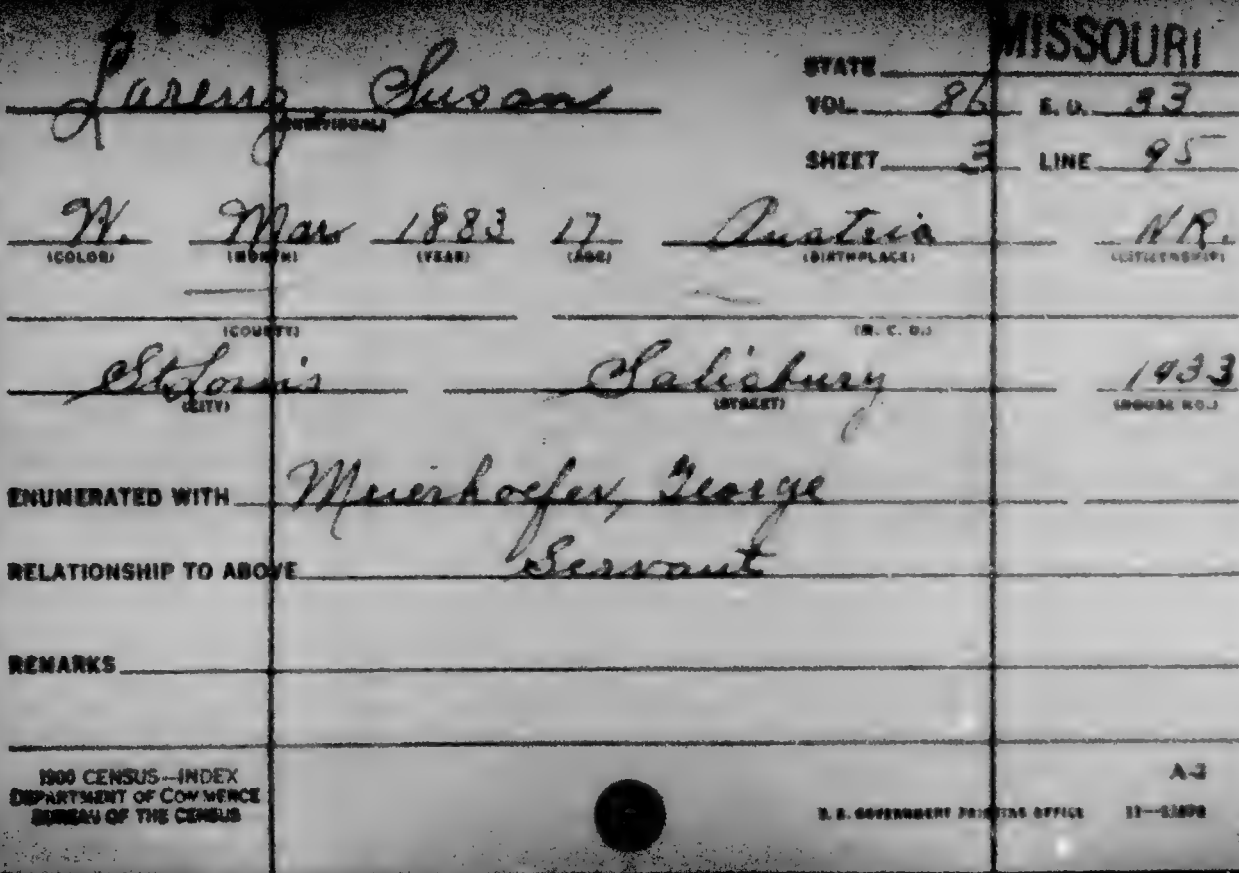 Lorenz, Susan
(INDIVIDUAL)
STATE MISSOURI
VOL. 86 E. D. 33
SHEET 3 LINE 95
W. Mar 1883 17 Austria N.R.
(COLOR) (MONTH) (YEAR) (AGE) (BIRTHPLACE) (CITIZENSHIP)
(COUNTY) (M. C. D.)
St Louis Salisbury 1933
(CITY) (STREET) (HOUSE NO.)
ENUMERATED WITH Meierhoefer, George
RELATIONSHIP TO ABOVE Servant
REMARKS
1900 CENSUS—INDEX
DEPARTMENT OF COMMERCE
BUREAU OF THE CENSUS
A-2
U. S. GOVERNMENT PRINTING OFFICE